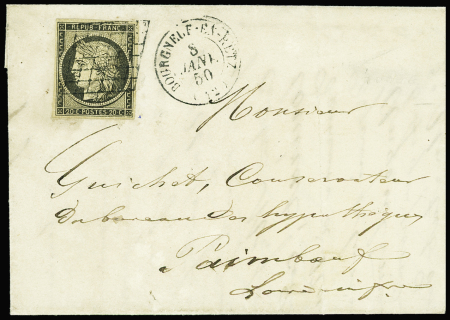 REPUB. FRANC.
20 C POSTES 20 C
BOURGNEUF-EN-RETZ
8
JANV.
50
Monsieur
Guichet, Conservateur
Du bureau des hypothèques
Paimboeuf
Loire infre